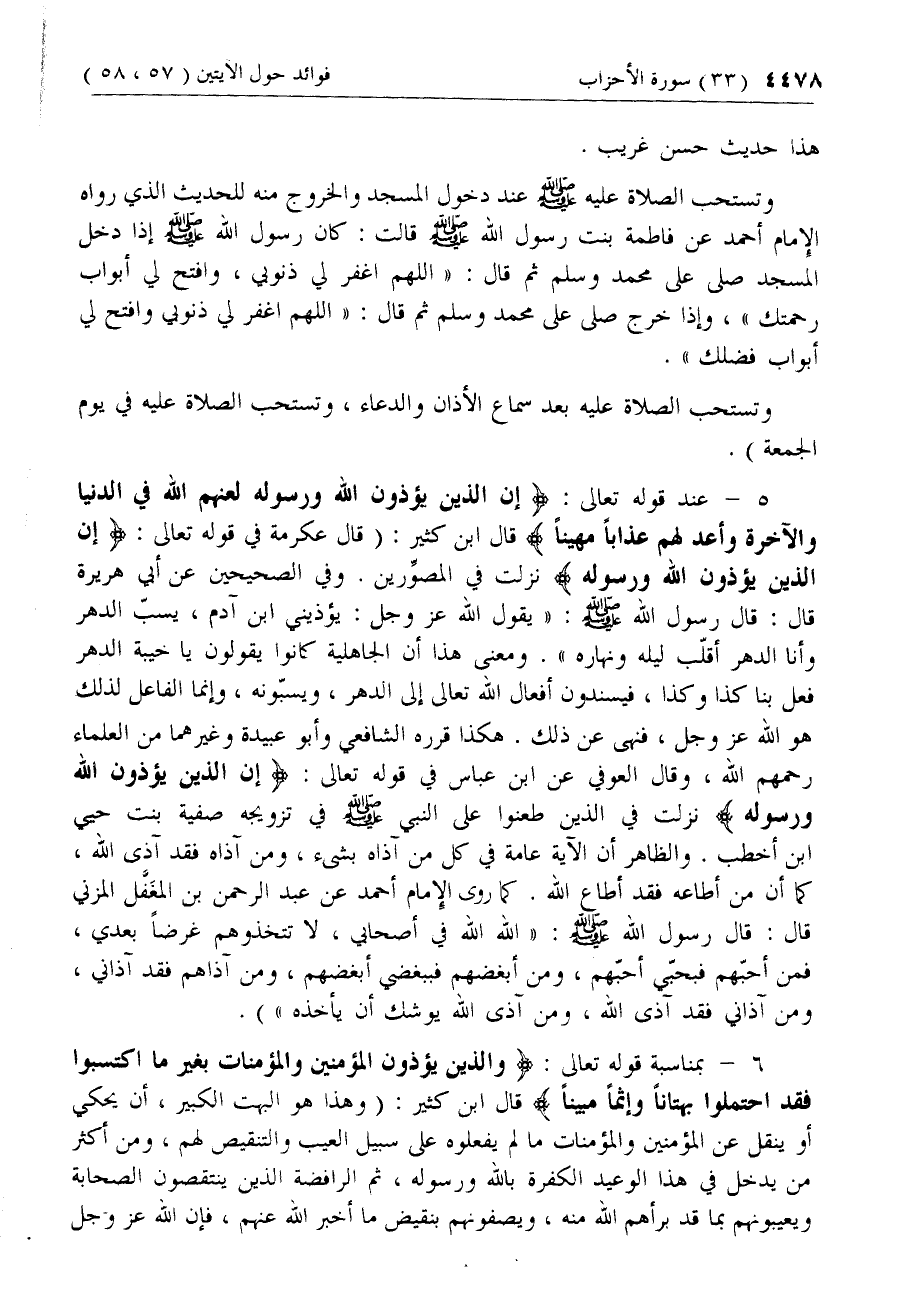 ٤٤٧٨ (٣٣) سورة الأحزاب فوائد حول الآيتين (٥٧ ، ٥٨)
هذا حديث حسن غريب .
وتستحب الصلاة عليه ﷺ عند دخول المسجد والخروج منه للحديث الذي رواه
الإمام أحمد عن فاطمة بنت رسول الله ﷺ قالت : كان رسول الله ﷺ إذا دخل
المسجد صلى على محمد وسلم ثم قال : « اللهم اغفر لي ذنوبي ، وافتح لي أبواب
رحمتك » ، وإذا خرج صلى على محمد وسلم ثم قال : « اللهم اغفر لي ذنوبي وافتح لي
أبواب فضلك » .
وتستحب الصلاة عليه بعد سماع الأذان والدعاء ، وتستحب الصلاة عليه في يوم
الجمعة ) .
٥ – عند قوله تعالى : ﴿ إن الذين يؤذون الله ورسوله لعنهم الله في الدنيا
والآخرة وأعد لهم عذاباً مهيناً ﴾ قال ابن كثير : ( قال عكرمة في قوله تعالى : ﴿ إن
الذين يؤذون الله ورسوله ﴾ نزلت في المصوِّرين . وفي الصحيحين عن أبي هريرة
قال : قال رسول الله ﷺ : « يقول الله عز وجل : يؤذيني ابن آدم ، يسبّ الدهر
وأنا الدهر أقلّب ليله ونهاره » . ومعنى هذا أن الجاهلية كانوا يقولون يا خيبة الدهر
فعل بنا كذا وكذا ، فيسندون أفعال الله تعالى إلى الدهر ، ويسبّونه ، وإنما الفاعل لذلك
هو الله عز وجل ، فنهى عن ذلك . هكذا قرره الشافعي وأبو عبيدة وغيرهما من العلماء
رحمهم الله ، وقال العوفي عن ابن عباس في قوله تعالى : ﴿ إن الذين يؤذون الله
ورسوله ﴾ نزلت في الذين طعنوا على النبي ﷺ في تزويجه صفية بنت حيي
ابن أخطب . والظاهر أن الآية عامة في كل من آذاه بشىء ، ومن آذاه فقد آذى الله ،
كما أن من أطاعه فقد أطاع الله . كما روى الإمام أحمد عن عبد الرحمن بن المغَفَّل المزني
قال : قال رسول الله ﷺ : « الله الله في أصحابي ، لا تتخذوهم غرضاً بعدي ،
فمن أحبّهم فبحبّي أحبّهم ، ومن أبغضهم فببغضي أبغضهم ، ومن آذاهم فقد آذاني ،
ومن آذاني فقد آذى الله ، ومن آذى الله يوشك أن يأخذه » ) .
٦ – بمناسبة قوله تعالى : ﴿ والذين يؤذون المؤمنين والمؤمنات بغير ما اكتسبوا
فقد احتملوا بهتاناً وإثماً مبيناً ﴾ قال ابن كثير : ( وهذا هو البهت الكبير ، أن يحكي
أو ينقل عن المؤمنين والمؤمنات ما لم يفعلوه على سبيل العيب والتنقيص لهم ، ومن أكثر
من يدخل في هذا الوعيد الكفرة بالله ورسوله ، ثم الرافضة الذين ينتقصون الصحابة
ويعيبونهم بما قد برأهم الله منه ، ويصفونهم بنقيض ما أخبر الله عنهم ، فإن الله عز وجل